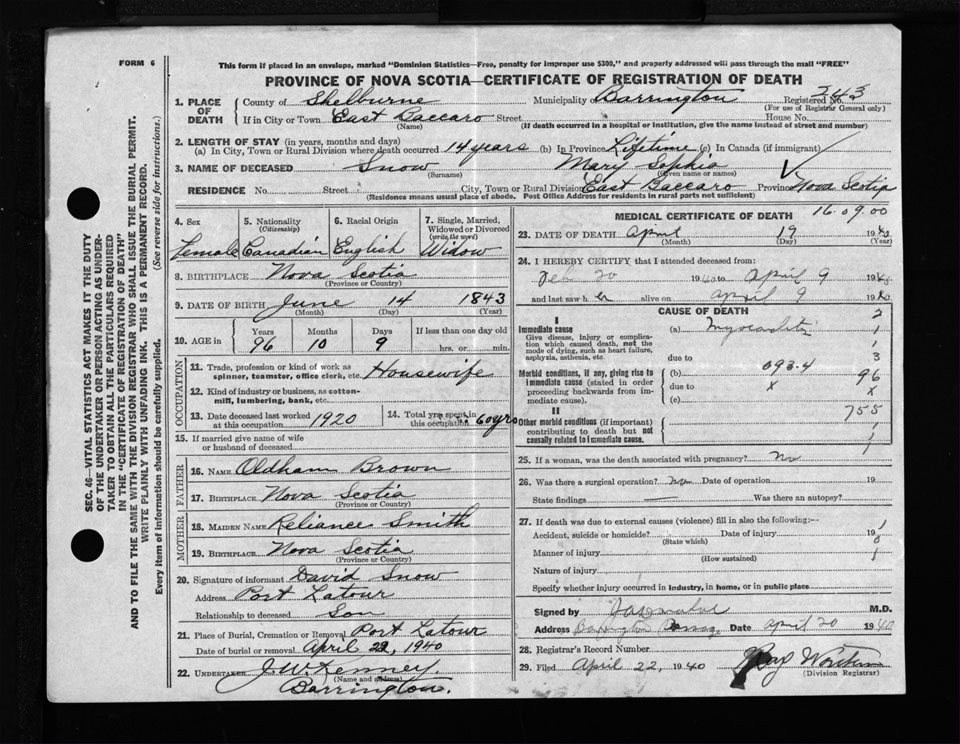 FORM 6
This form if placed in an envelope, marked "Dominion Statistics—Free, penalty for improper use $300," and properly addressed will pass through the mail "FREE"
PROVINCE OF NOVA SCOTIA—CERTIFICATE OF REGISTRATION OF DEATH
1. PLACE OF DEATH County of Shelburne Municipality Barrington Registered No. 343
(For use of Registrar General only)
If in City or Town East Baccaro Street House No.
(Name) (If death occurred in a hospital or institution, give the name instead of street and number)
2. LENGTH OF STAY (in years, months and days)
(a) In City, Town or Rural Division where death occurred 14 years (b) In Province Lifetime (c) In Canada (if immigrant)
3. NAME OF DECEASED Snow Mary Sophia
(Surname) (Given name or names)
RESIDENCE No. Street City, Town or Rural Division East Baccaro Province Nova Scotia
(Residence means usual place of abode. Post Office Address for residents in rural parts not sufficient)
SEC. 46—VITAL STATISTICS ACT MAKES IT THE DUTY
OF THE UNDERTAKER OR PERSON ACTING AS UNDER-
TAKER TO OBTAIN ALL THE PARTICULARS REQUIRED
IN THE "CERTIFICATE OF REGISTRATION OF DEATH"
AND TO FILE THE SAME WITH THE DIVISION REGISTRAR WHO SHALL ISSUE THE BURIAL PERMIT.
WRITE PLAINLY WITH UNFADING INK. THIS IS A PERMANENT RECORD.
Every item of information should be carefully supplied. (See reverse side for instructions.)
4. Sex 5. Nationality (Citizenship) 6. Racial Origin 7. Single, Married, Widowed or Divorced (write the word)
Female Canadian English Widow
8. BIRTHPLACE Nova Scotia
(Province or Country)
9. DATE OF BIRTH June 14 1843
(Month) (Day) (Year)
10. AGE in Years Months Days If less than one day old
96 10 9 hrs. or min.
OCCUPATION
11. Trade, profession or kind of work as spinner, teamster, office clerk, etc. Housewife
12. Kind of industry or business, as cotton-mill, lumbering, bank, etc.
13. Date deceased last worked at this occupation 1920 14. Total yrs. spent in this occupation 60 yrs
15. If married give name of wife or husband of deceased
FATHER
16. NAME Oldham Brown
17. BIRTHPLACE Nova Scotia
(Province or Country)
MOTHER
18. MAIDEN NAME Reliance Smith
19. BIRTHPLACE Nova Scotia
(Province or Country)
20. Signature of informant David Snow
Address Port Latour
Relationship to deceased Son
21. Place of Burial, Cremation or Removal Port Latour
Date of burial or removal April 22, 1940
22. UNDERTAKER J. W. Kenney,
(Name and address)
Barrington.
MEDICAL CERTIFICATE OF DEATH 16.09.00
23. DATE OF DEATH April 19 1940
(Month) (Day) (Year)
24. I HEREBY CERTIFY that I attended deceased from:
Feb 20 1940 to April 9 1940
and last saw her alive on April 9 1940
CAUSE OF DEATH 2
I
Immediate cause (a) Myocarditis 1
Give disease, injury or complica-
tion which caused death, not the
mode of dying, such as heart failure,
asphyxia, asthenia, etc.
due to 3
Morbid conditions, if any, giving rise to (b) 093.4 96
immediate cause (stated in order due to x x
proceeding backwards from im-
mediate cause). (c)
755
II
Other morbid conditions (if important) 1
contributing to death but not
causally related to immediate cause. 1
25. If a woman, was the death associated with pregnancy? No
26. Was there a surgical operation? no Date of operation 19
State findings — Was there an autopsy?
27. If death was due to external causes (violence) fill in also the following:—
Accident, suicide or homicide? Date of injury 19
(State which)
Manner of injury
(How sustained)
Nature of injury
Specify whether injury occurred in industry, in home, or in public place
Signed by M.D.
Address Barrington Passage Date April 20 1940
28. Registrar's Record Number
29. Filed April 22, 1940
(Division Registrar)